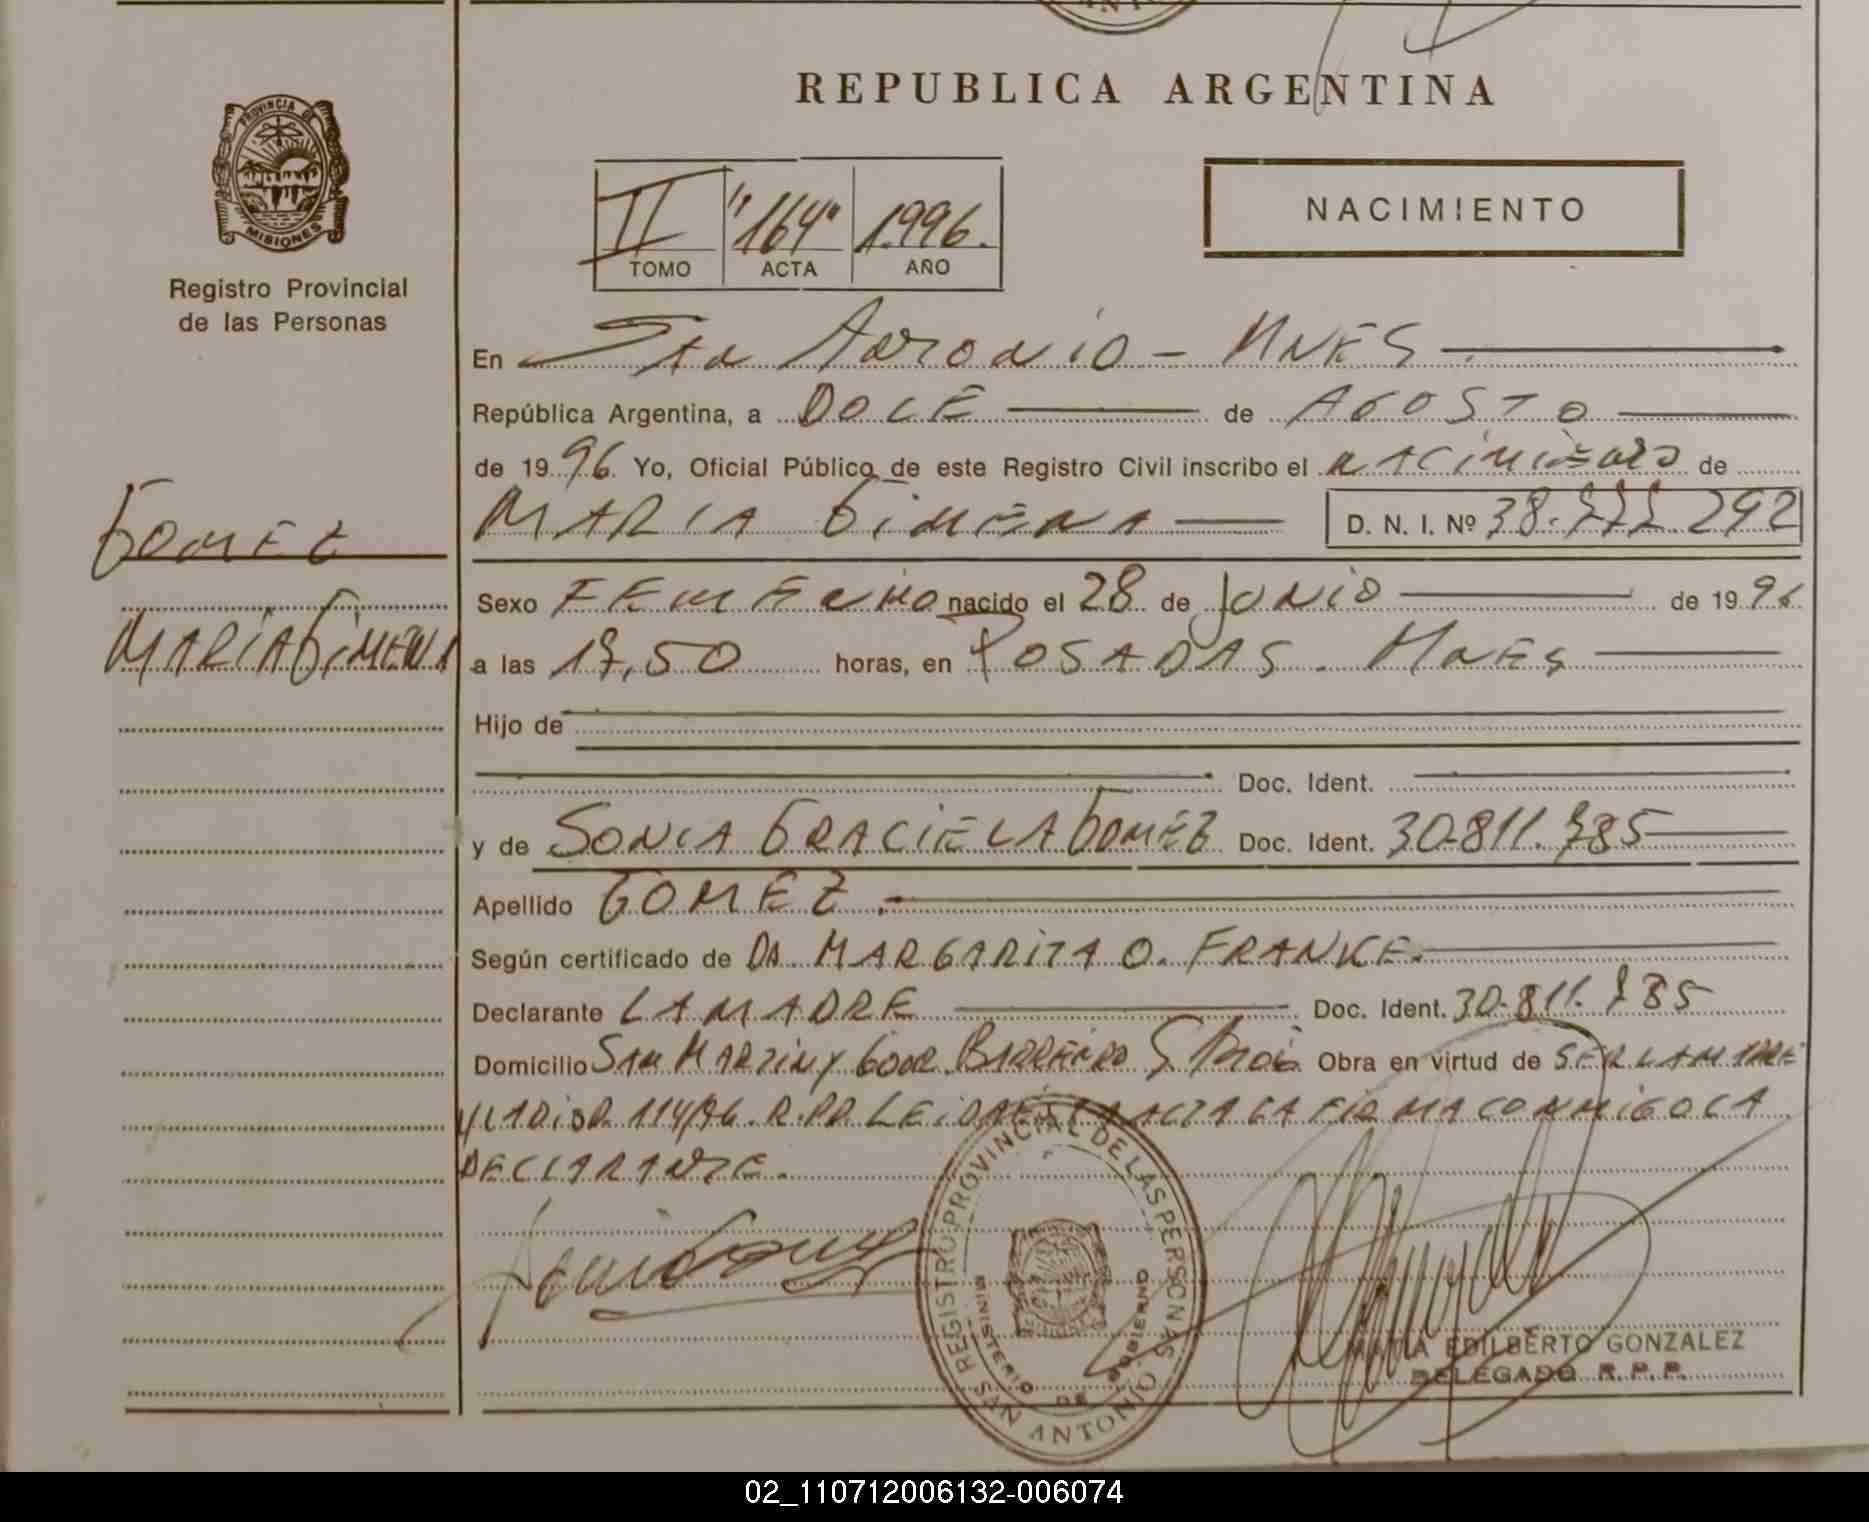 REPUBLICA ARGENTINA
PROVINCIA DE
MISIONES
Registro Provincial
de las Personas
II "164" 1.996.
TOMO ACTA AÑO
NACIMIENTO
En San Antonio - Mnes
República Argentina, a DOCE de AGOSTO
de 1996. Yo, Oficial Público de este Registro Civil inscribo el nacimiento de
MARIA GIMENA D. N. I. Nº 38.777.292
GOMEZ
MARIA GIMENA
Sexo FEMENINO nacido el 28 de JUNIO de 1996
a las 17,50 horas, en POSADAS. Mnes
Hijo de
Doc. Ident.
y de SONIA GRACIELA GOMEZ Doc. Ident. 30.811.785
Apellido GOMEZ.
Según certificado de DA. MARGARITA O. FRANKE.
Declarante LA MADRE Doc. Ident. 30.811.785
Domicilio SAN MARTIN Y GOB. BARREIRO Obra en virtud de SER LA MADRE
Y LA DISP. 114/96. R.P.P. LEIDA EL ACTA LA FIRMA CONMIGO LA
DECLARANTE.
REGISTRO PROVINCIAL DE LAS PERSONAS
MINISTERIO DE GOBIERNO
SAN ANTONIO
MATIA EDILBERTO GONZALEZ
DELEGADO R. P. P.
02_110712006132-006074